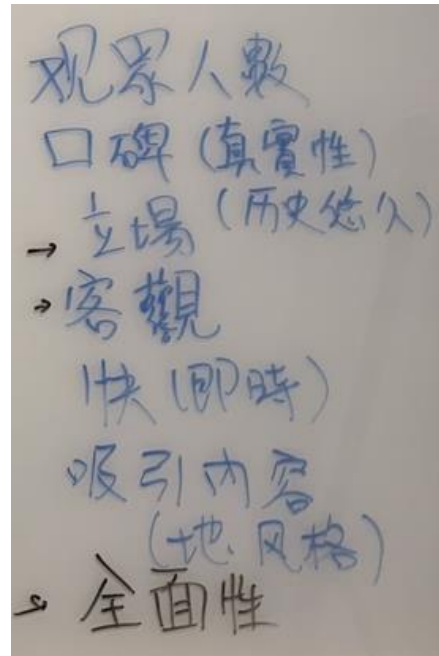 观眾人數
口碑(真實性)
(历史悠久)
→ 立場
→ 客觀
快(即時)
吸引內容
(地、风格)
→ 全面性